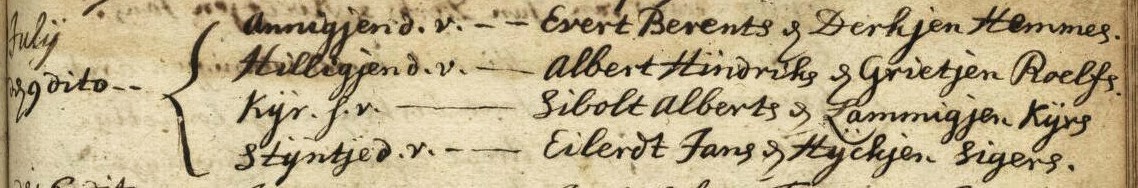 Julij
Annigjen d. v. -- Evert Berents & Derkjen Hemmes.
Hilligjen d. v. -- Albert Hindriks & Grietjen Roelfs.
den 9 dito--
Kyr. s. v. -- Sibolt Alberts & Lammigjen Kijrs
Stijntje d. v. -- Eilerdt Jans & Hyckjen Sigers.
dito